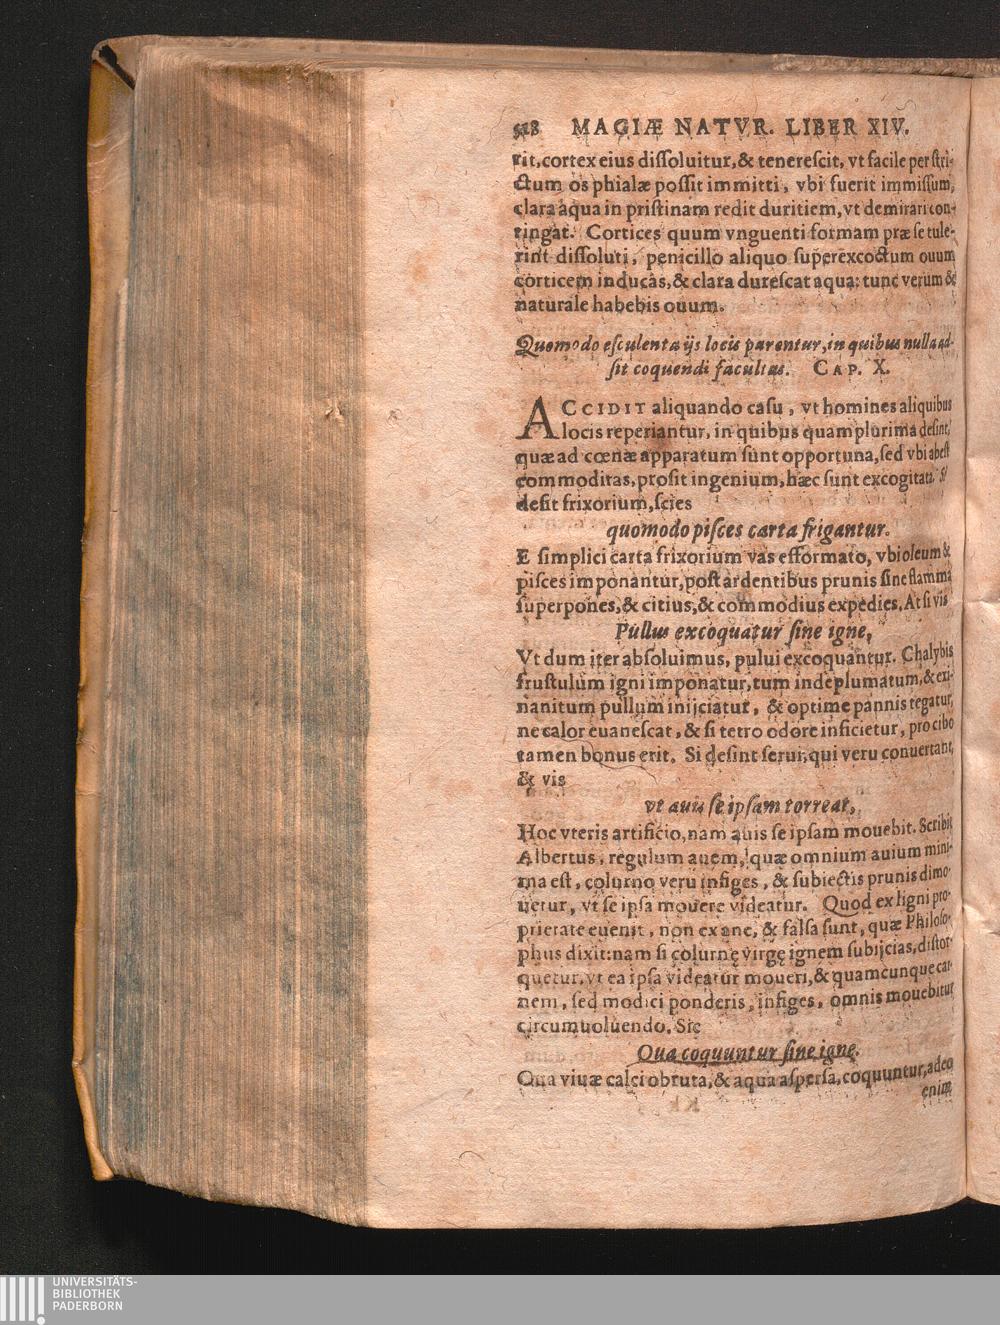 518 MAGIÆ NATVR. LIBER XIV.
rit, cortex eius dissoluitur, & tenerescit, vt facile per stri-
ctum os phialæ possit immitti, vbi fuerit immissum,
clara aqua in pristinam redit duritiem, vt demirari con-
tingat. Cortices quum vnguenti formam præ se tule-
rint dissoluti, penicillo aliquo superexcoctum ouum
corticem inducas, & clara durescat aqua: tunc verum &
naturale habebis ouum.
Quomodo esculenta ijs locis parentur, in quibus nulla ad-
sit coquendi facultas. CAP. X.
ACCIDIT aliquando casu, vt homines aliquibus
locis reperiantur, in quibus quam plurima desint,
quæ ad cœnæ apparatum sunt opportuna, sed vbi abest
commoditas, prosit ingenium, hæc sunt excogitata. Si
desit frixorium, scies
quomodo pisces carta frigantur.
E simplici carta frixorium vas efformato, vbi oleum &
pisces imponantur, post ardentibus prunis sine flamma
superpones, & citius, & commodius expedies. At si vis
Pullus excoquatur sine igne,
Vt dum iter absoluimus, pului excoquantur. Chalybis
frustulum igni imponatur, tum indeplumatum, & exi-
nanitum pullum inijciatur, & optime pannis tegatur,
ne calor euanescat, & si tetro odore inficietur, pro cibo
tamen bonus erit. Si desint serui, qui veru conuertant,
& vis
vt auis se ipsam torreat,
Hoc vteris artificio, nam auis se ipsam mouebit. Scribit
Albertus, regulum auem, quæ omnium auium mini-
ma est, colurno veru infiges, & subiectis prunis dimo-
uetur, vt se ipsa mouere videatur. Quod ex ligni pro-
prietate euenit, non ex ane, & falsa sunt, quæ Philoso-
phus dixit: nam si colurnę virgę ignem subijcias, distor-
quetur, vt ea ipsa videatur moueri, & quamcunque car-
nem, sed modici ponderis, infiges, omnis mouebitur
circumuoluendo. Sic
Oua coquuntur sine igne.
Oua viuæ calci obruta, & aqua aspersa, coquuntur, adeo
enim
UNIVERSITÄTS-
BIBLIOTHEK
PADERBORN